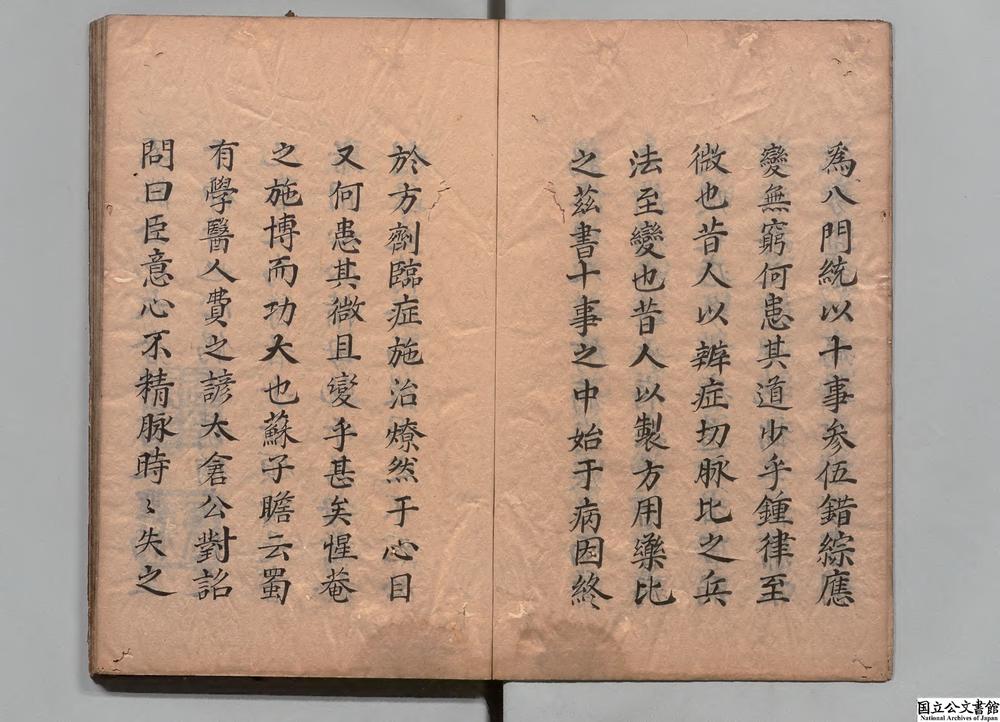 為八門統以十事参伍錯綜應
變無窮何患其道少乎鍾律至
微也昔人以辨症切脉比之兵
法至變也昔人以製方用藥比
之茲書十事之中始于病因終
於方劑臨症施治燎然于心目
又何患其微且變乎甚矣惺菴
之施博而功大也蘇子瞻云蜀
有學醫人費之諺太倉公對詔
問曰臣意心不精脉時〻失之
国立公文書館
National Archives of Japan